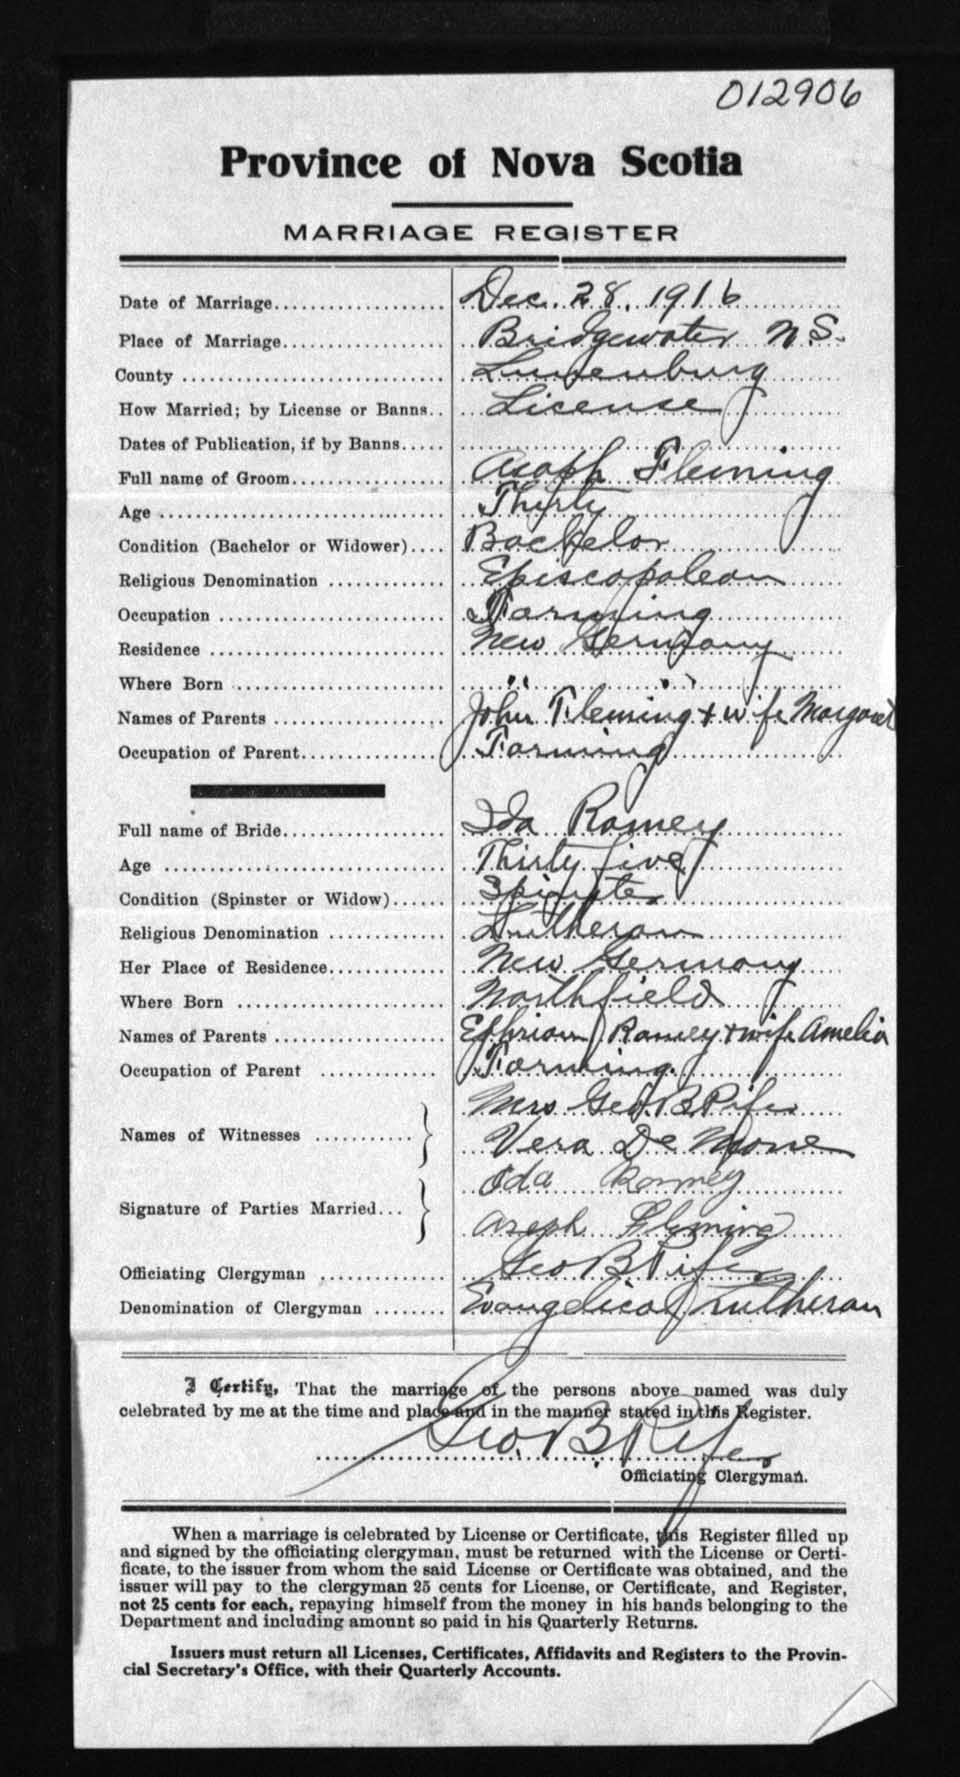 012906
Province of Nova Scotia
MARRIAGE REGISTER
Date of Marriage Dec. 28, 1916
Place of Marriage Bridgewater N S.
County Lunenburg
How Married; by License or Banns License
Dates of Publication, if by Banns
Full name of Groom Asaph Fleming
Age Thirty
Condition (Bachelor or Widower) Bachelor
Religious Denomination Episcopalean
Occupation Farming
Residence New Germany
Where Born " "
Names of Parents John Fleming + wife Margaret
Occupation of Parent Farming
Full name of Bride Ida Ramey
Age Thirty five
Condition (Spinster or Widow) Spinster
Religious Denomination Lutheran
Her Place of Residence New Germany
Where Born Northfield
Names of Parents Ephriam Ramey + wife Amelia
Occupation of Parent Farming.
Names of Witnesses } Mrs Geo. B Pifer
Vera DeMone
Signature of Parties Married } Ida Ramey
Aseph Fleming
Officiating Clergyman Geo B Pifer
Denomination of Clergyman Evangelical Lutheran
I Certify, That the marriage of the persons above named was duly
celebrated by me at the time and place and in the manner stated in this Register.
Geo. B Pifer
Officiating Clergyman.
When a marriage is celebrated by License or Certificate, this Register filled up
and signed by the officiating clergyman, must be returned with the License or Certi-
ficate, to the issuer from whom the said License or Certificate was obtained, and the
issuer will pay to the clergyman 25 cents for License, or Certificate, and Register,
not 25 cents for each, repaying himself from the money in his hands belonging to the
Department and including amount so paid in his Quarterly Returns.
Issuers must return all Licenses, Certificates, Affidavits and Registers to the Provin-
cial Secretary's Office, with their Quarterly Accounts.